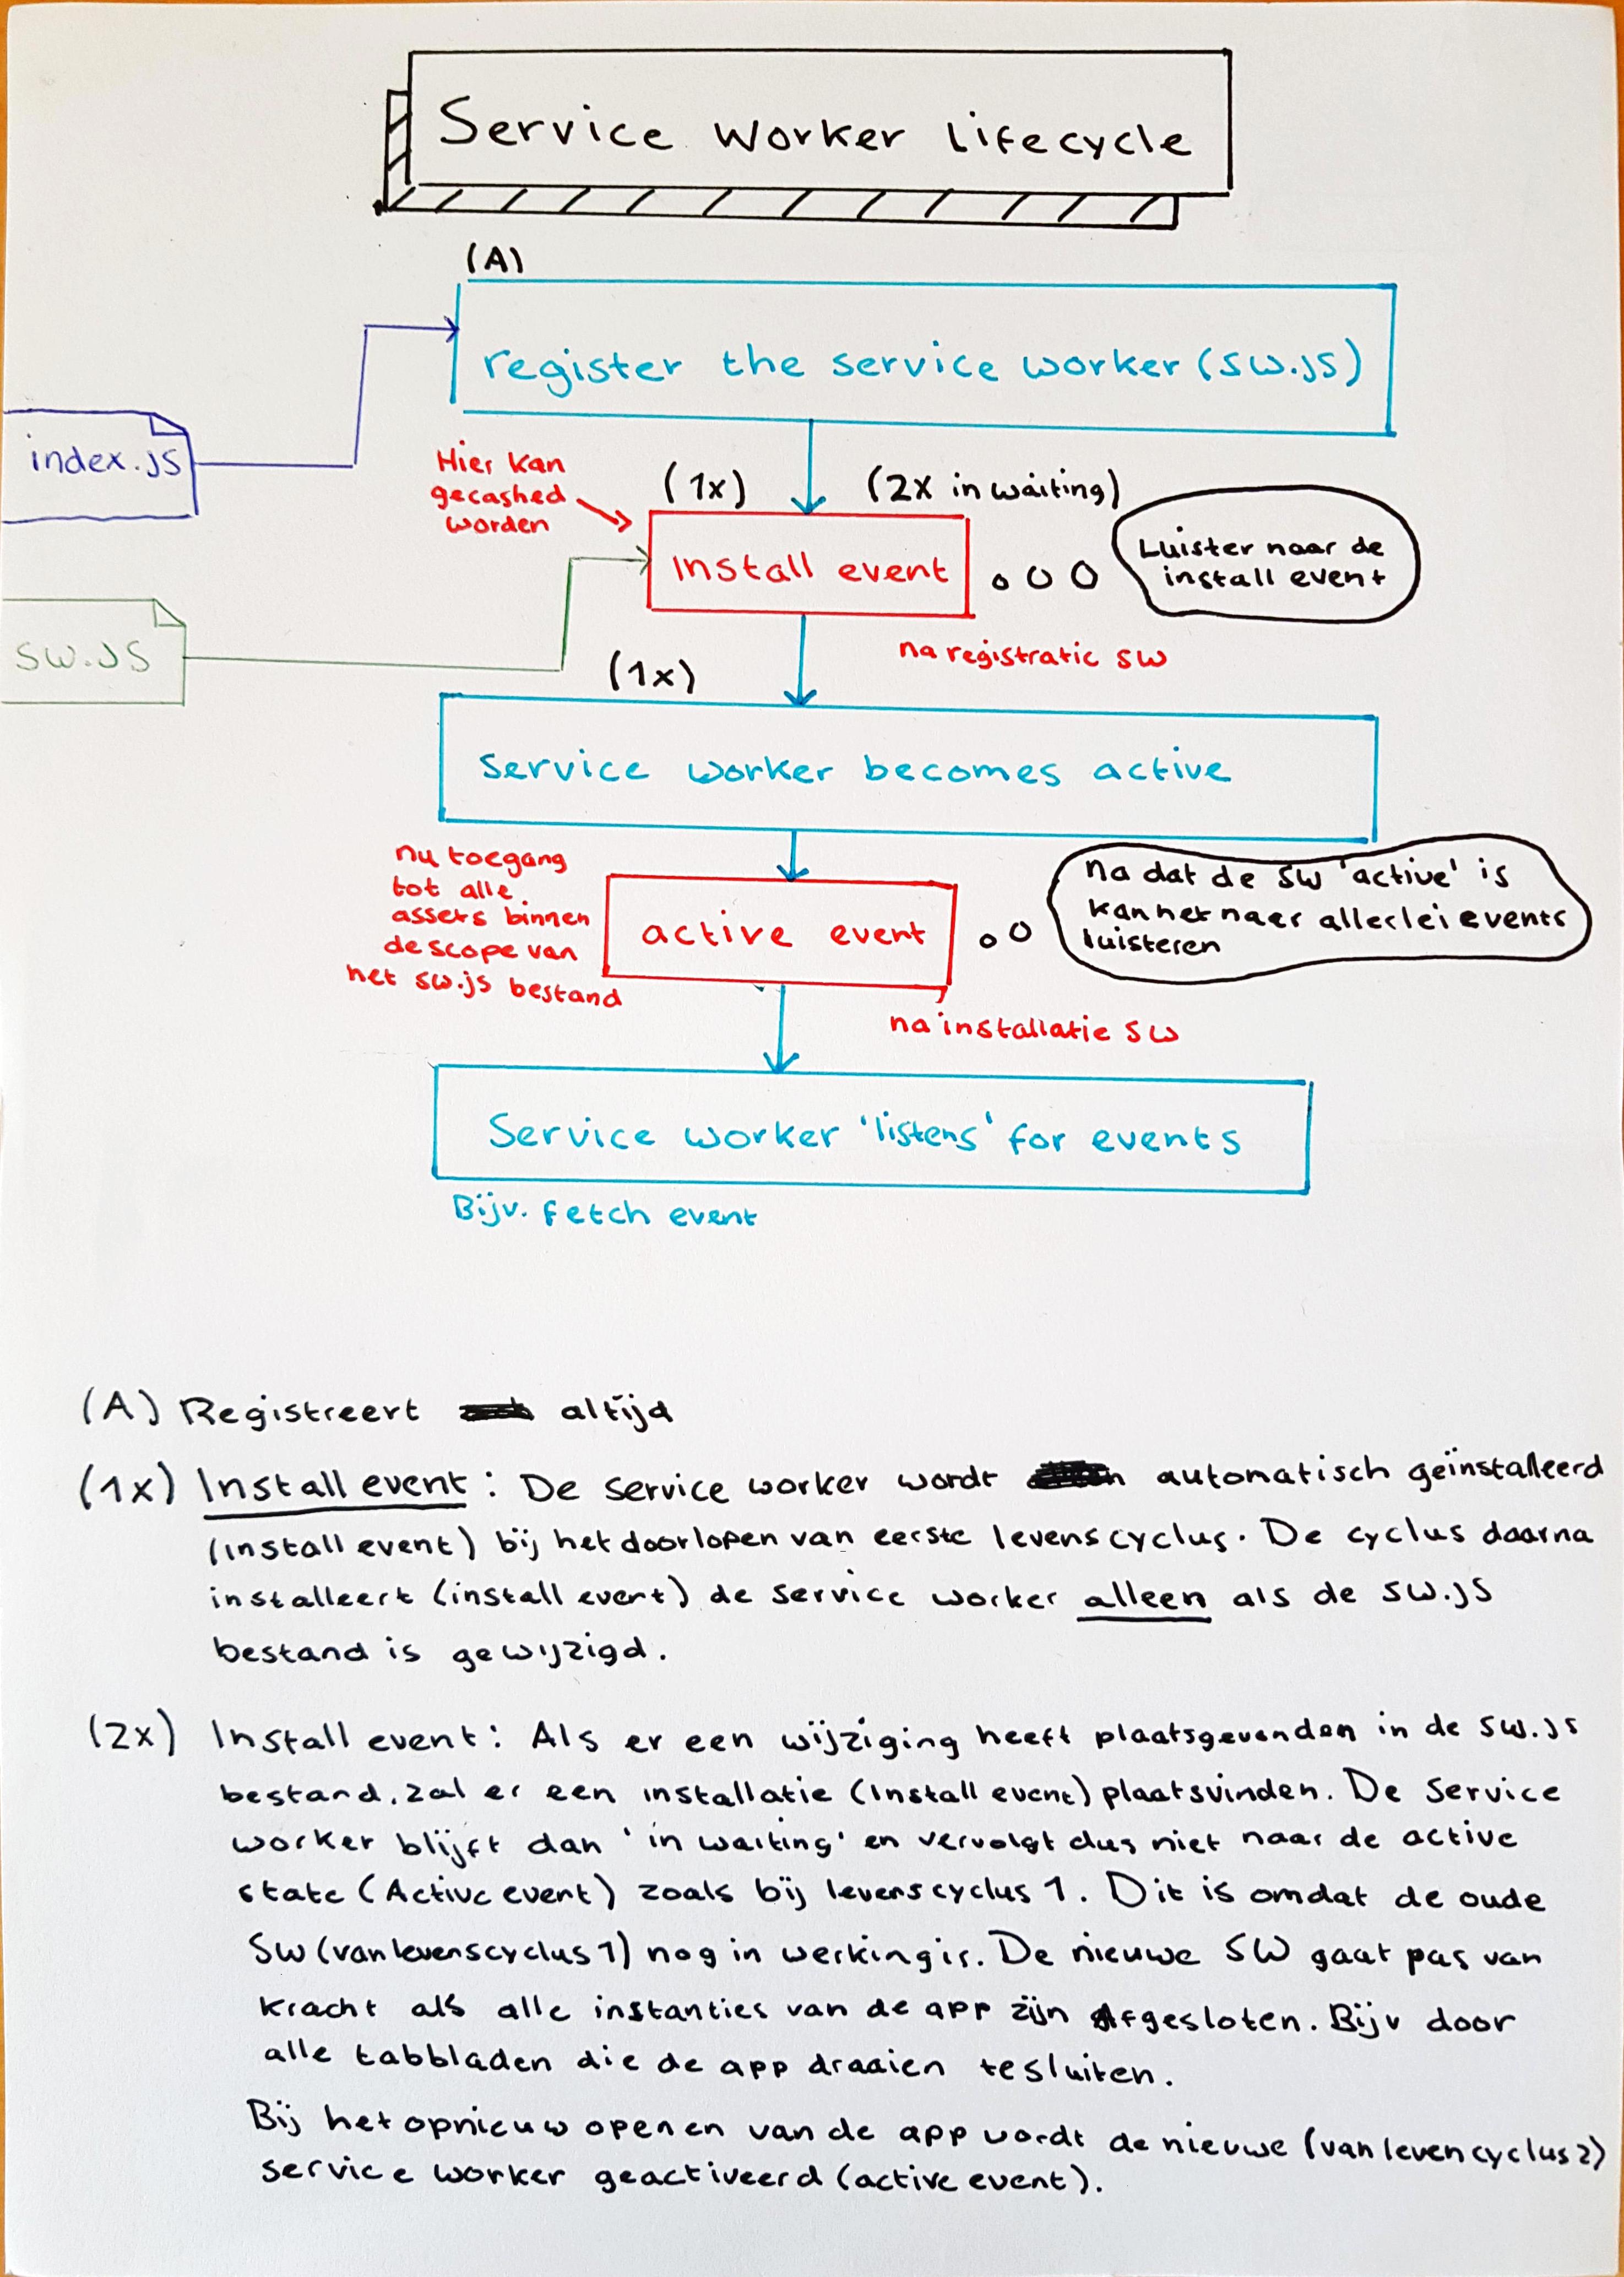 Service Worker Lifecycle
(A)
register the service worker (sw.js)
index.js
Hier kan
gecashed
worden
(1x)
(2x in waiting)
Install event
Luister naar de
install event
sw.js
na registratie sw
(1x)
Service worker becomes active
nu toegang
tot alle
assets binnen
de scope van
het sw.js bestand
active event
na dat de sw 'active' is
kan het naar allerlei events
luisteren
na installatie sw
Service worker 'listens' for events
Bijv. fetch event
(A) Registreert altijd
(1x) Install event: De service worker wordt automatisch geïnstalleerd
(install event) bij het doorlopen van eerste levenscyclus. De cyclus daarna
installeert (install event) de service worker alleen als de sw.js
bestand is gewijzigd.
(2x) Install event: Als er een wijziging heeft plaatsgevonden in de sw.js
bestand, zal er een installatie (Install event) plaatsvinden. De service
worker blijft dan 'in waiting' en vervolgt dus niet naar de active
state (Active event) zoals bij levenscyclus 1. Dit is omdat de oude
SW (van levenscyclus 1) nog in werking is. De nieuwe SW gaat pas van
kracht als alle instanties van de app zijn afgesloten. Bijv door
alle tabbladen die de app draaien te sluiten.
Bij het opnieuw openen van de app wordt de nieuwe (van levencyclus 2)
service worker geactiveerd (active event).